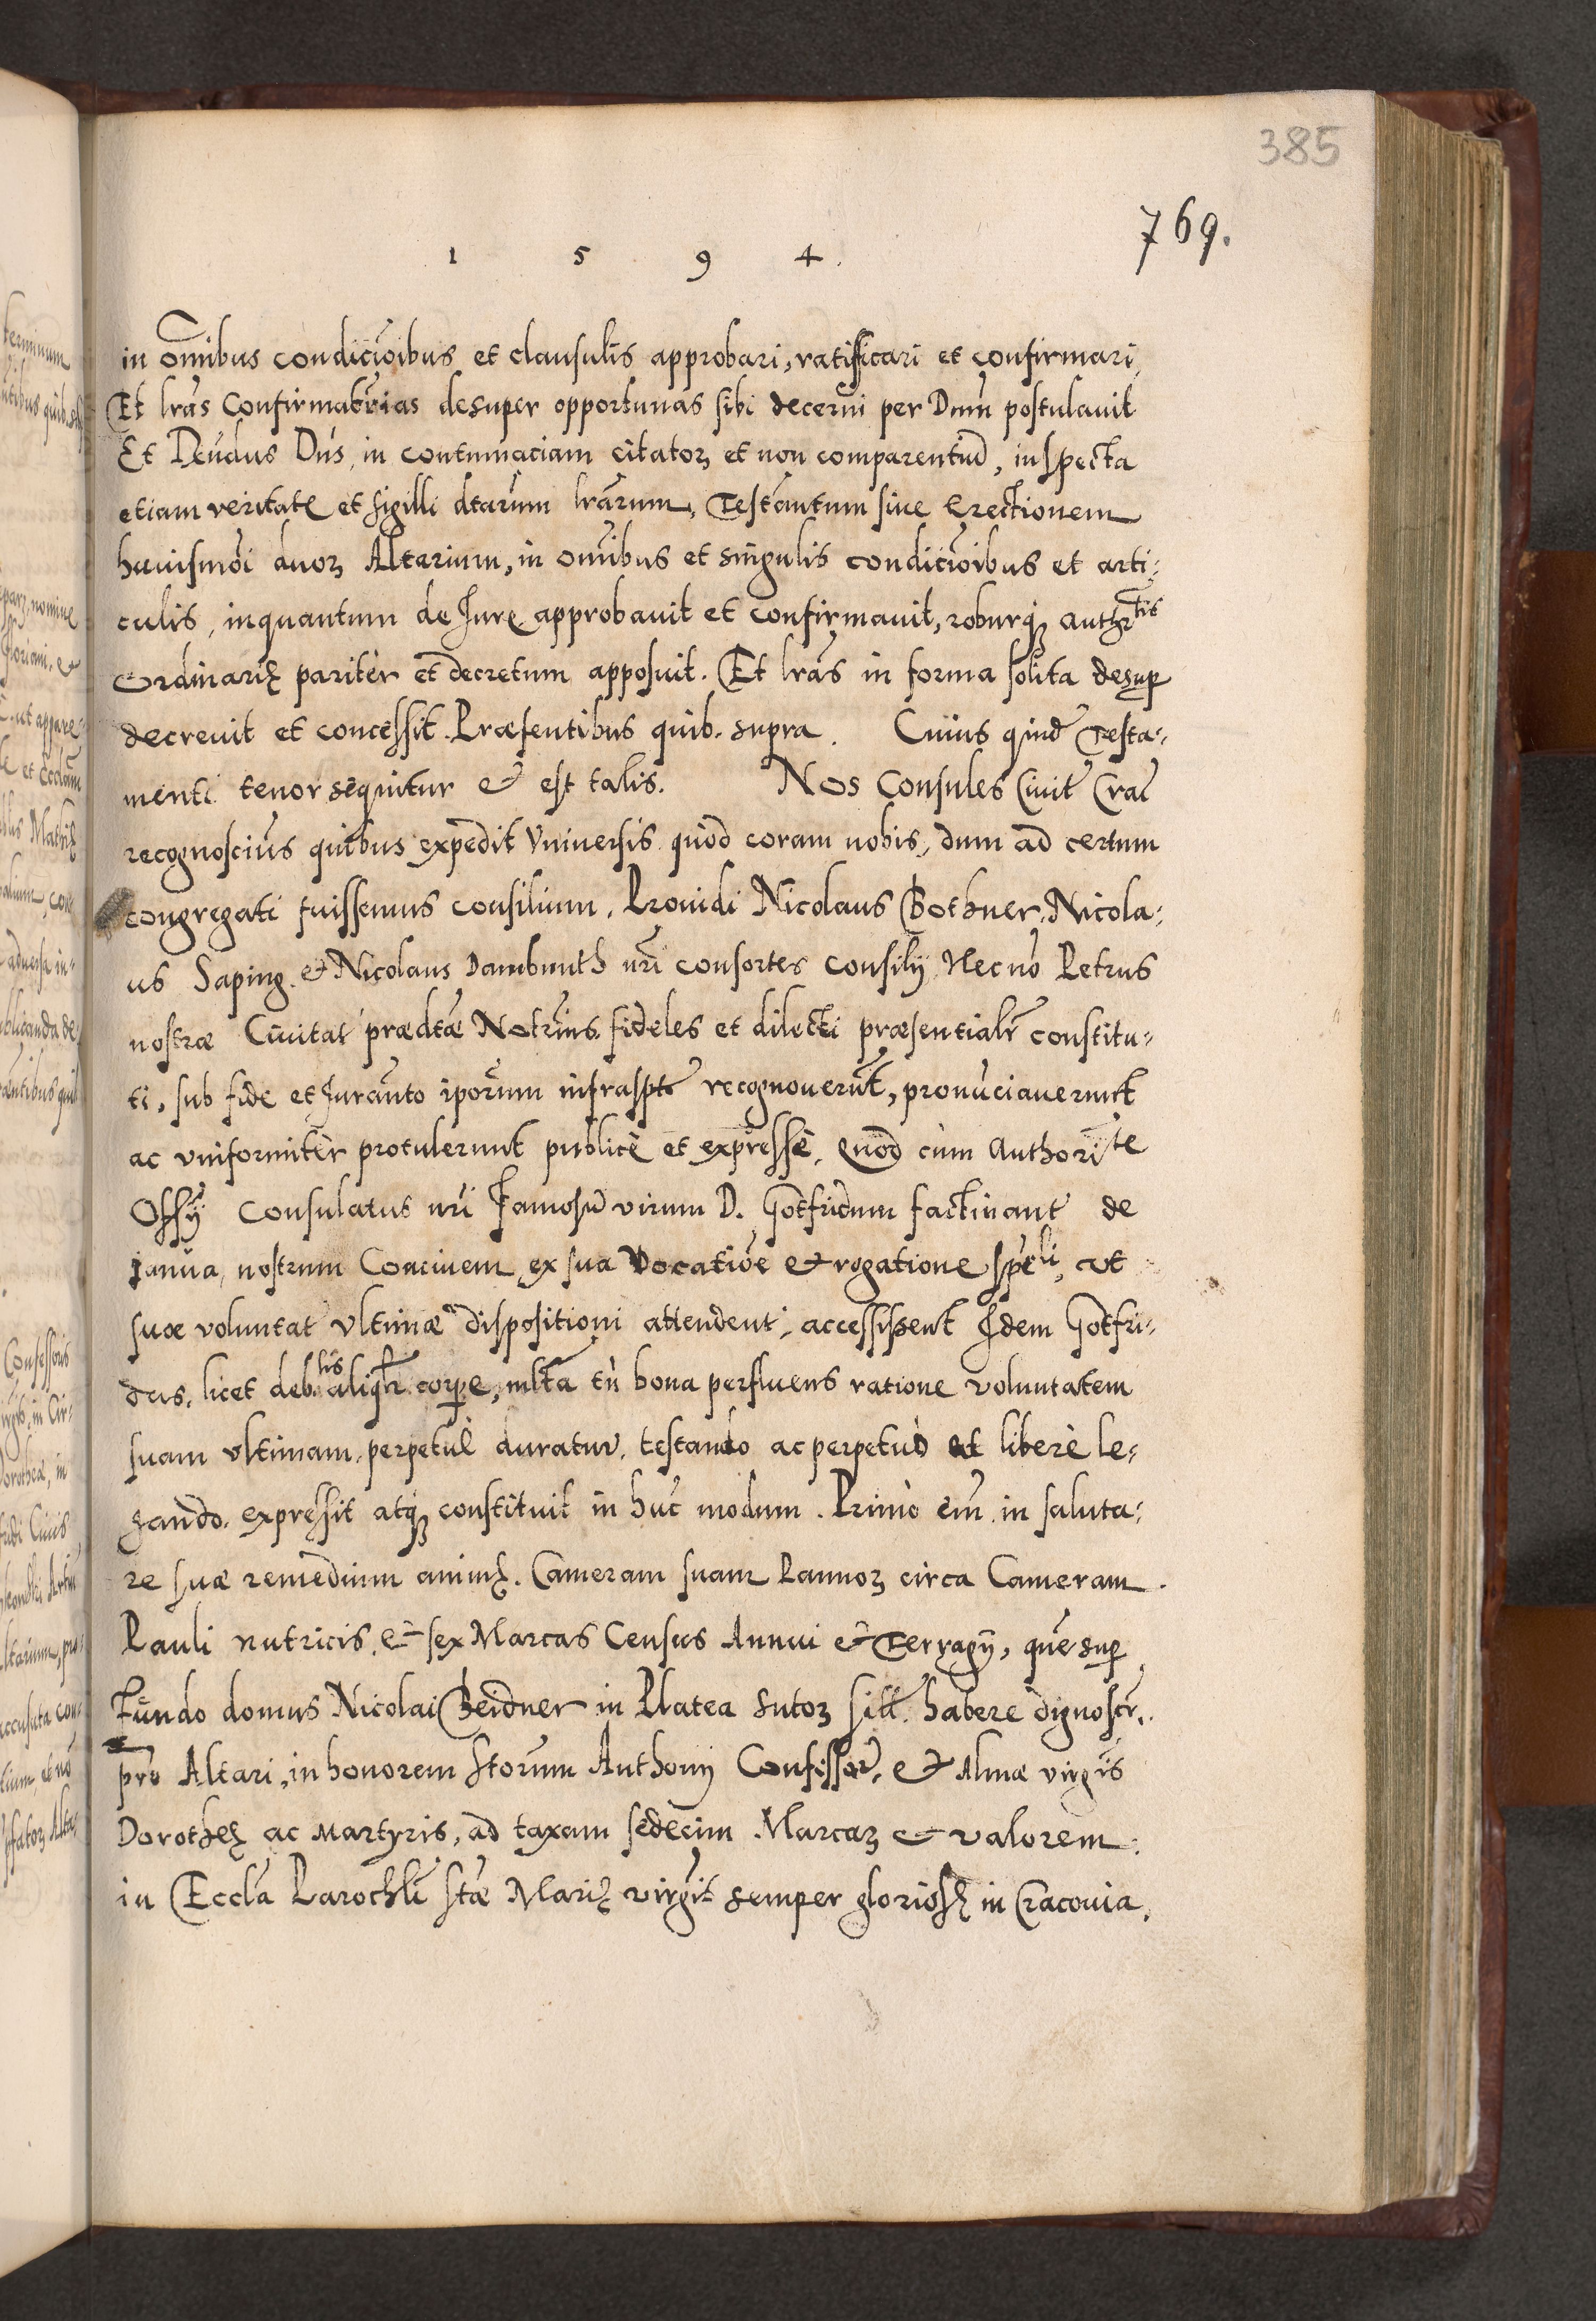 385
769.
1 5 9 4.
in om̃ibus condicio͠ibus et clausulis approbari, ratificari et confirmari,
Et lr̃as Confirmatorias desuper opportunas sibi decerni per Dnum postulauit
Et Rẽudus Dñs, in contumaciam citatoꝝ et non comparentiũ, inspecta
etiam veritate et sigilli dtarum lr̃arum, Testãntum siue Erectionem
huiusmõi duoꝝ Altarium, in om̃ibus et singulis condicio͠ibus et arti-
culis, inquantum de Jure approbauit et confirmauit, roburqꝫ auth͠rtis
Ordinariæ pariter et decretum apposuit. Et lr̃as in forma solita desup
decreuit et concessit. Præsentibus quib. supra. Cuius quid͠ Testa-
menti tenor sequitur & est talis. Nos Consules Ciuit͠ Crac͠
recognoscim͠us quibus expedit Vniuersis quod coram nobis, dum ad certum
congregati fuissemus consilium, Prouidi Nicolaus Bothner, Nicola-
us Saping & Nicolaus Dambunth nr̃i consortes Consilij Necno͠ Petrus
nostræ Ciuitat͠ prædtæ Notrius, fideles et dilecti præsentialr͠ constitu-
ti, sub fide et Jurãnto ip̃orum infraspt͠ recognouerũt, pronũciauerunt
ac vniformiter protulerunt publicè et expressè, Quod cùm Authorite
Offĳ Consulatus nr̃i Famosũ virum D. Gotfridum factinant͠ de
Janua, nostrum Conciuem, ex sua Vocatio͠e & rogatione sp͠eli, vt
suæ voluntat͠ Vltimæ dispositioni attendent, accessissent Jdem Gotfri-
dus, licet debilis aliqr͠ corꝑe, mlt͠a tñ bona perfluens ratione voluntatem
suam vltimam, perpetuè duraturã, testando ac perpetuò et liberè le-
gando, expressit atqꝫ constituit in hũc modum. Primò em͠ in saluta-
re suæ remedium animæ. Cameram suam Pannoꝝ circa Cameram
Pauli nutricis, & sex Marcas Census Annui & Terragĳ, quẽ sup
Fundo domus Nicolai Beidner in Platea Sutoꝝ sitt. habere dignoscr͠,
pro Altari, in honorem Storum Anthonij Confissor͠, & Almæ virgĩs
Dorotheæ ac Martyris, ad taxam sedecim Marcaꝝ & valorem
in Eccl͠a Parochli͠ Stæ Mariæ virgi͠s semper gloriosæ in Cracouia,